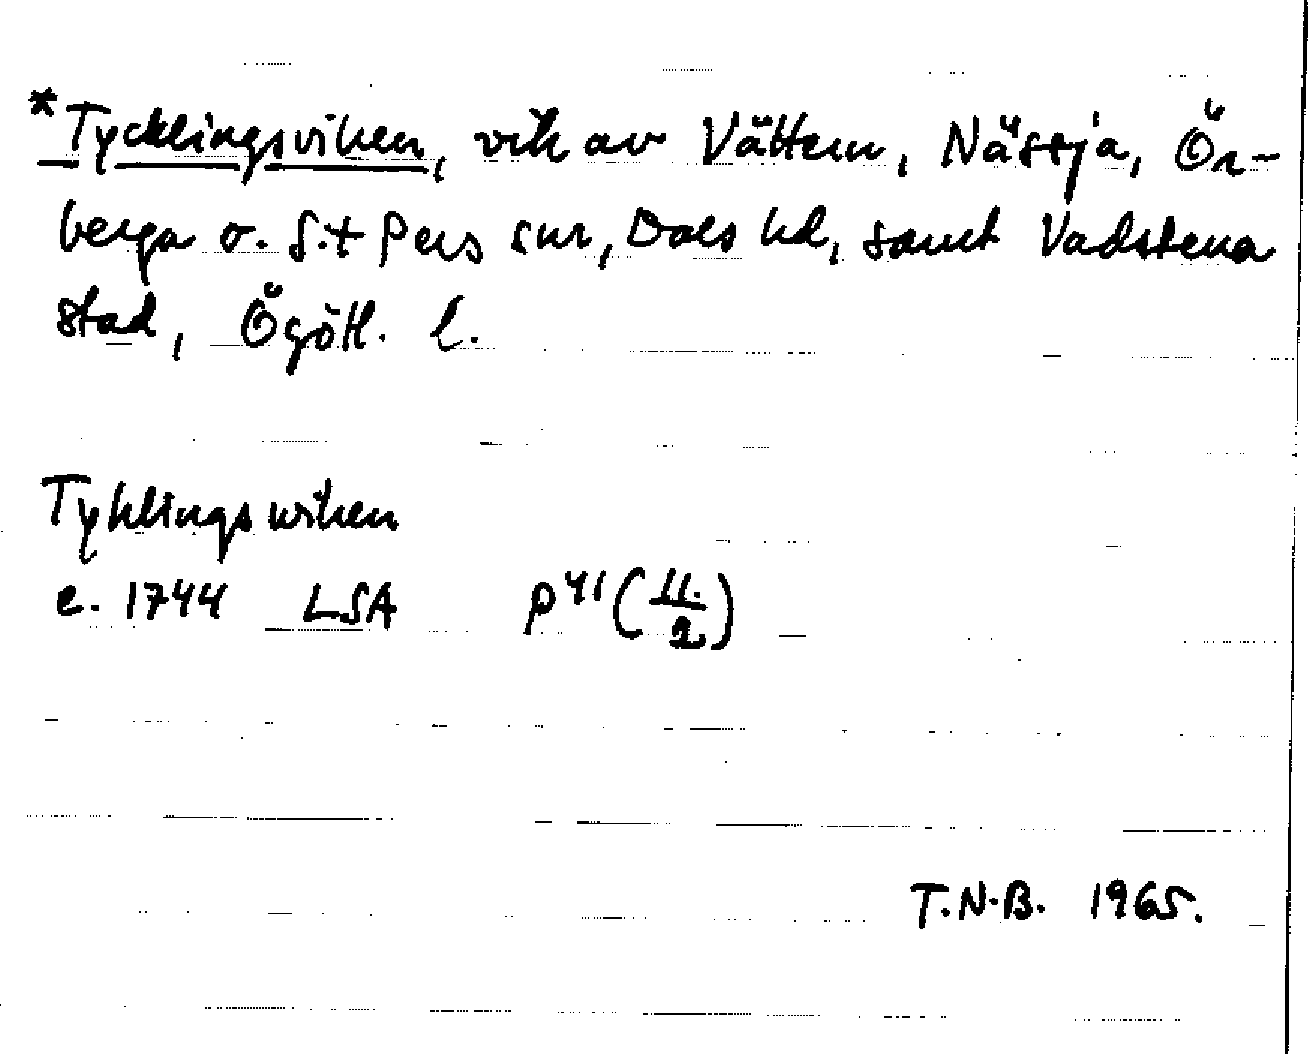 *Tycklingsviken, vik av Vättern, Nässja, Ör-
berga o. S:t Pers snr, Dals hd, samt Vadstena
stad, Ögötl. l.
Tyklingswiken
c. 1744 LSA P 41 (11./2)
T.N.B. 1965.